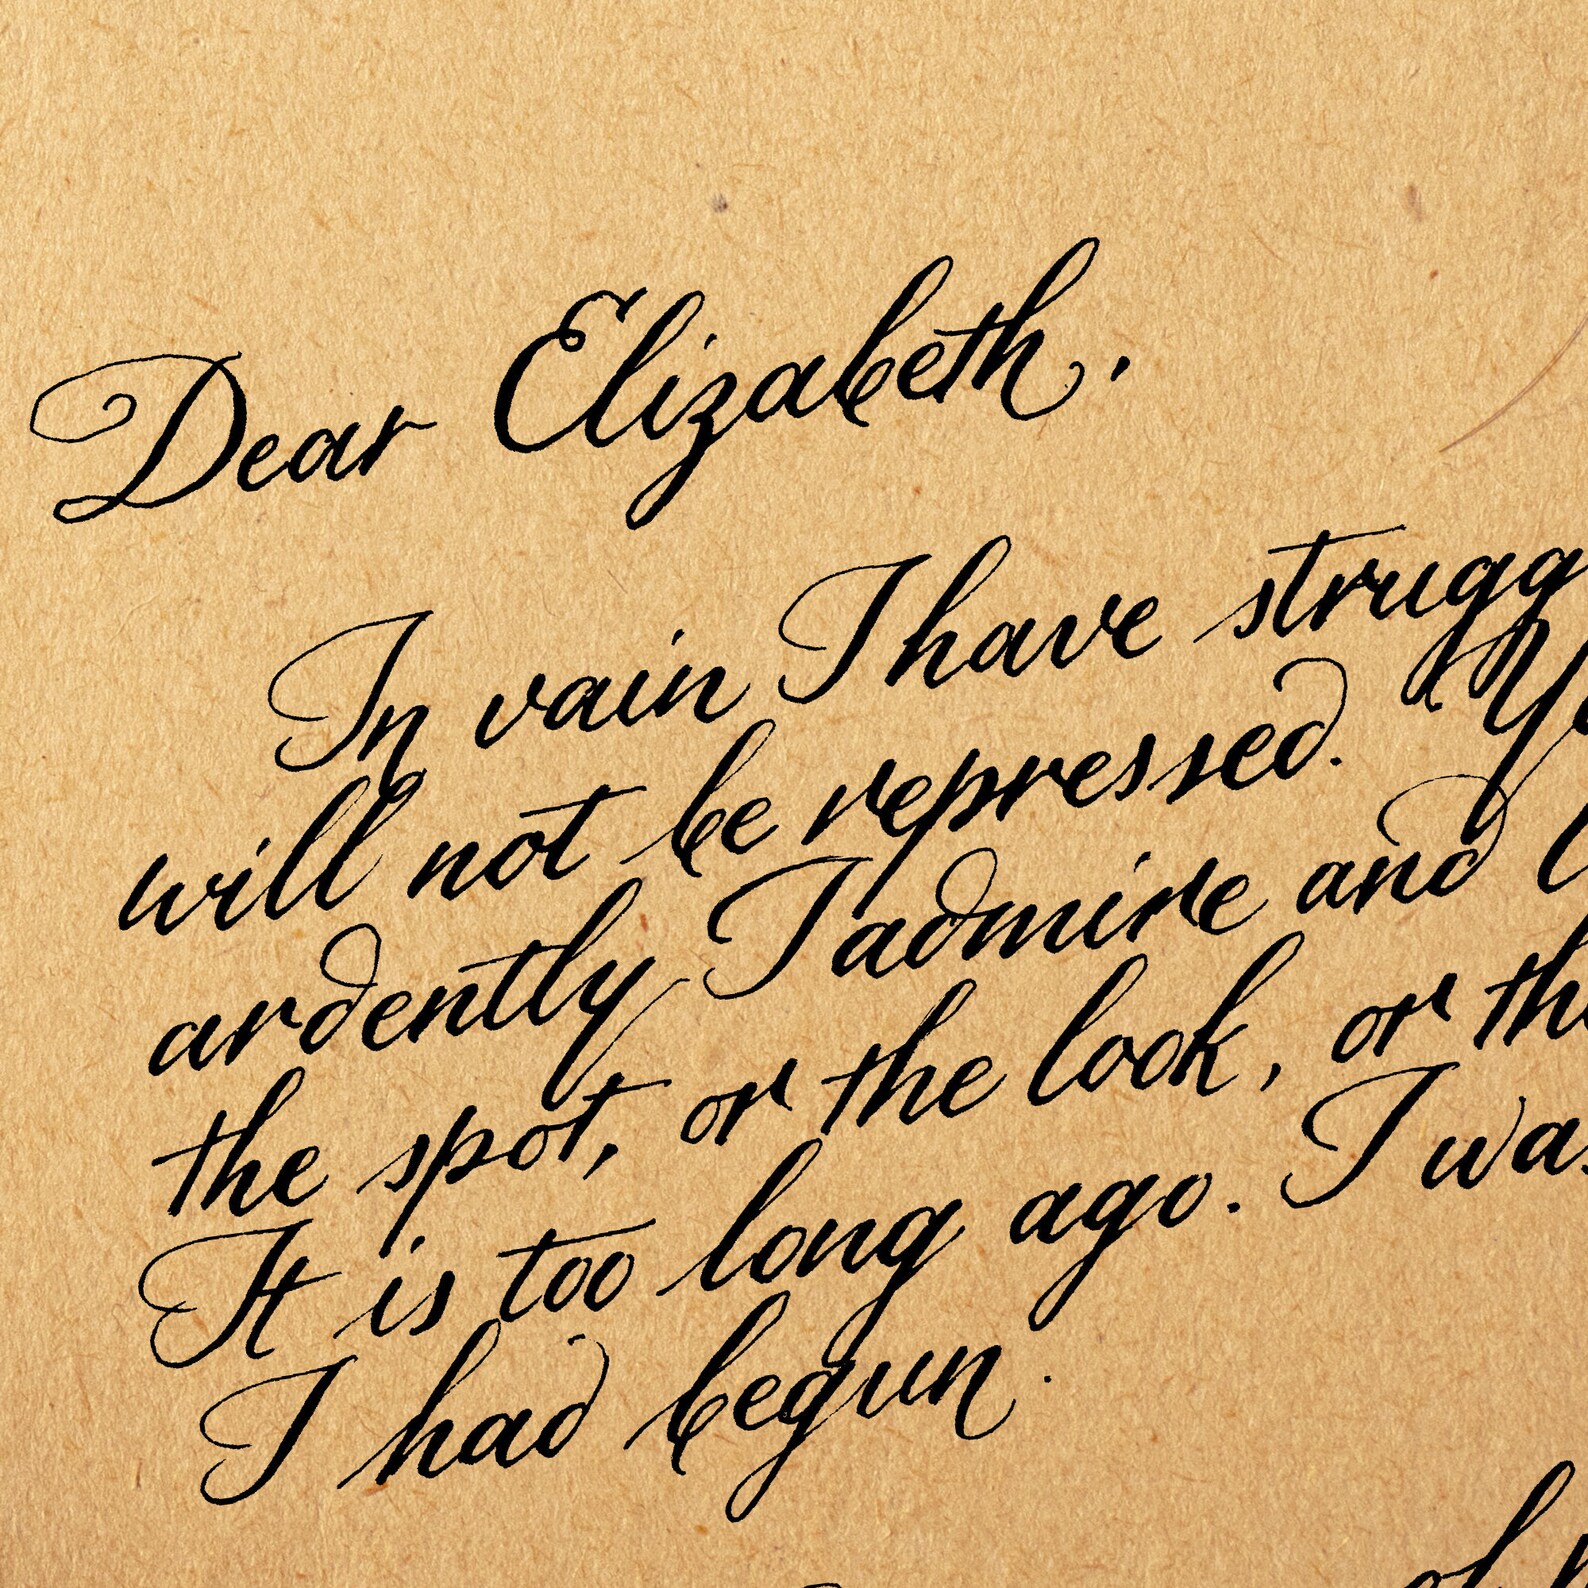 Dear Elizabeth,
In vain I have strugg
will not be repressed. Yo
ardently I admire and
the spot, or the look, or the
It is too long ago. I was
I had begun.
of